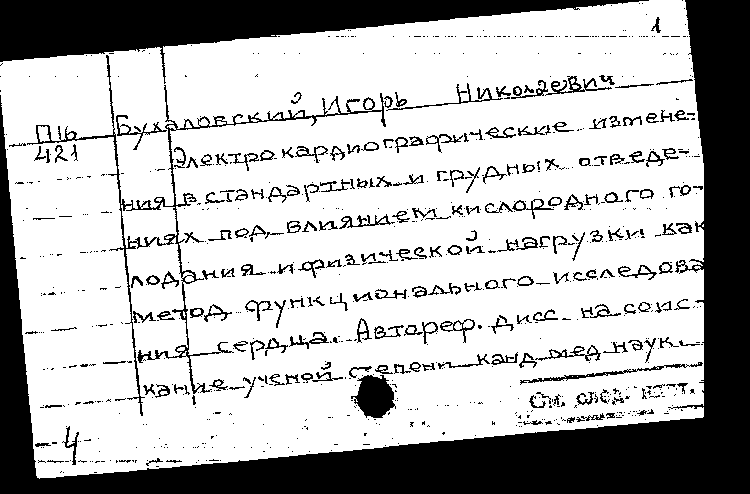 1
Бухаловский, Игорь Николаевич
П16
421
Электрокардиографические измене-
ния в стандартных и грудных отведе-
ниях под влиянием кислородного го-
лодания и физической нагрузки как
метод функционального исследова
ния сердца. Автореф. дисс на соис-
кание ученой степени канд мед наук.
См. след. карт.
4